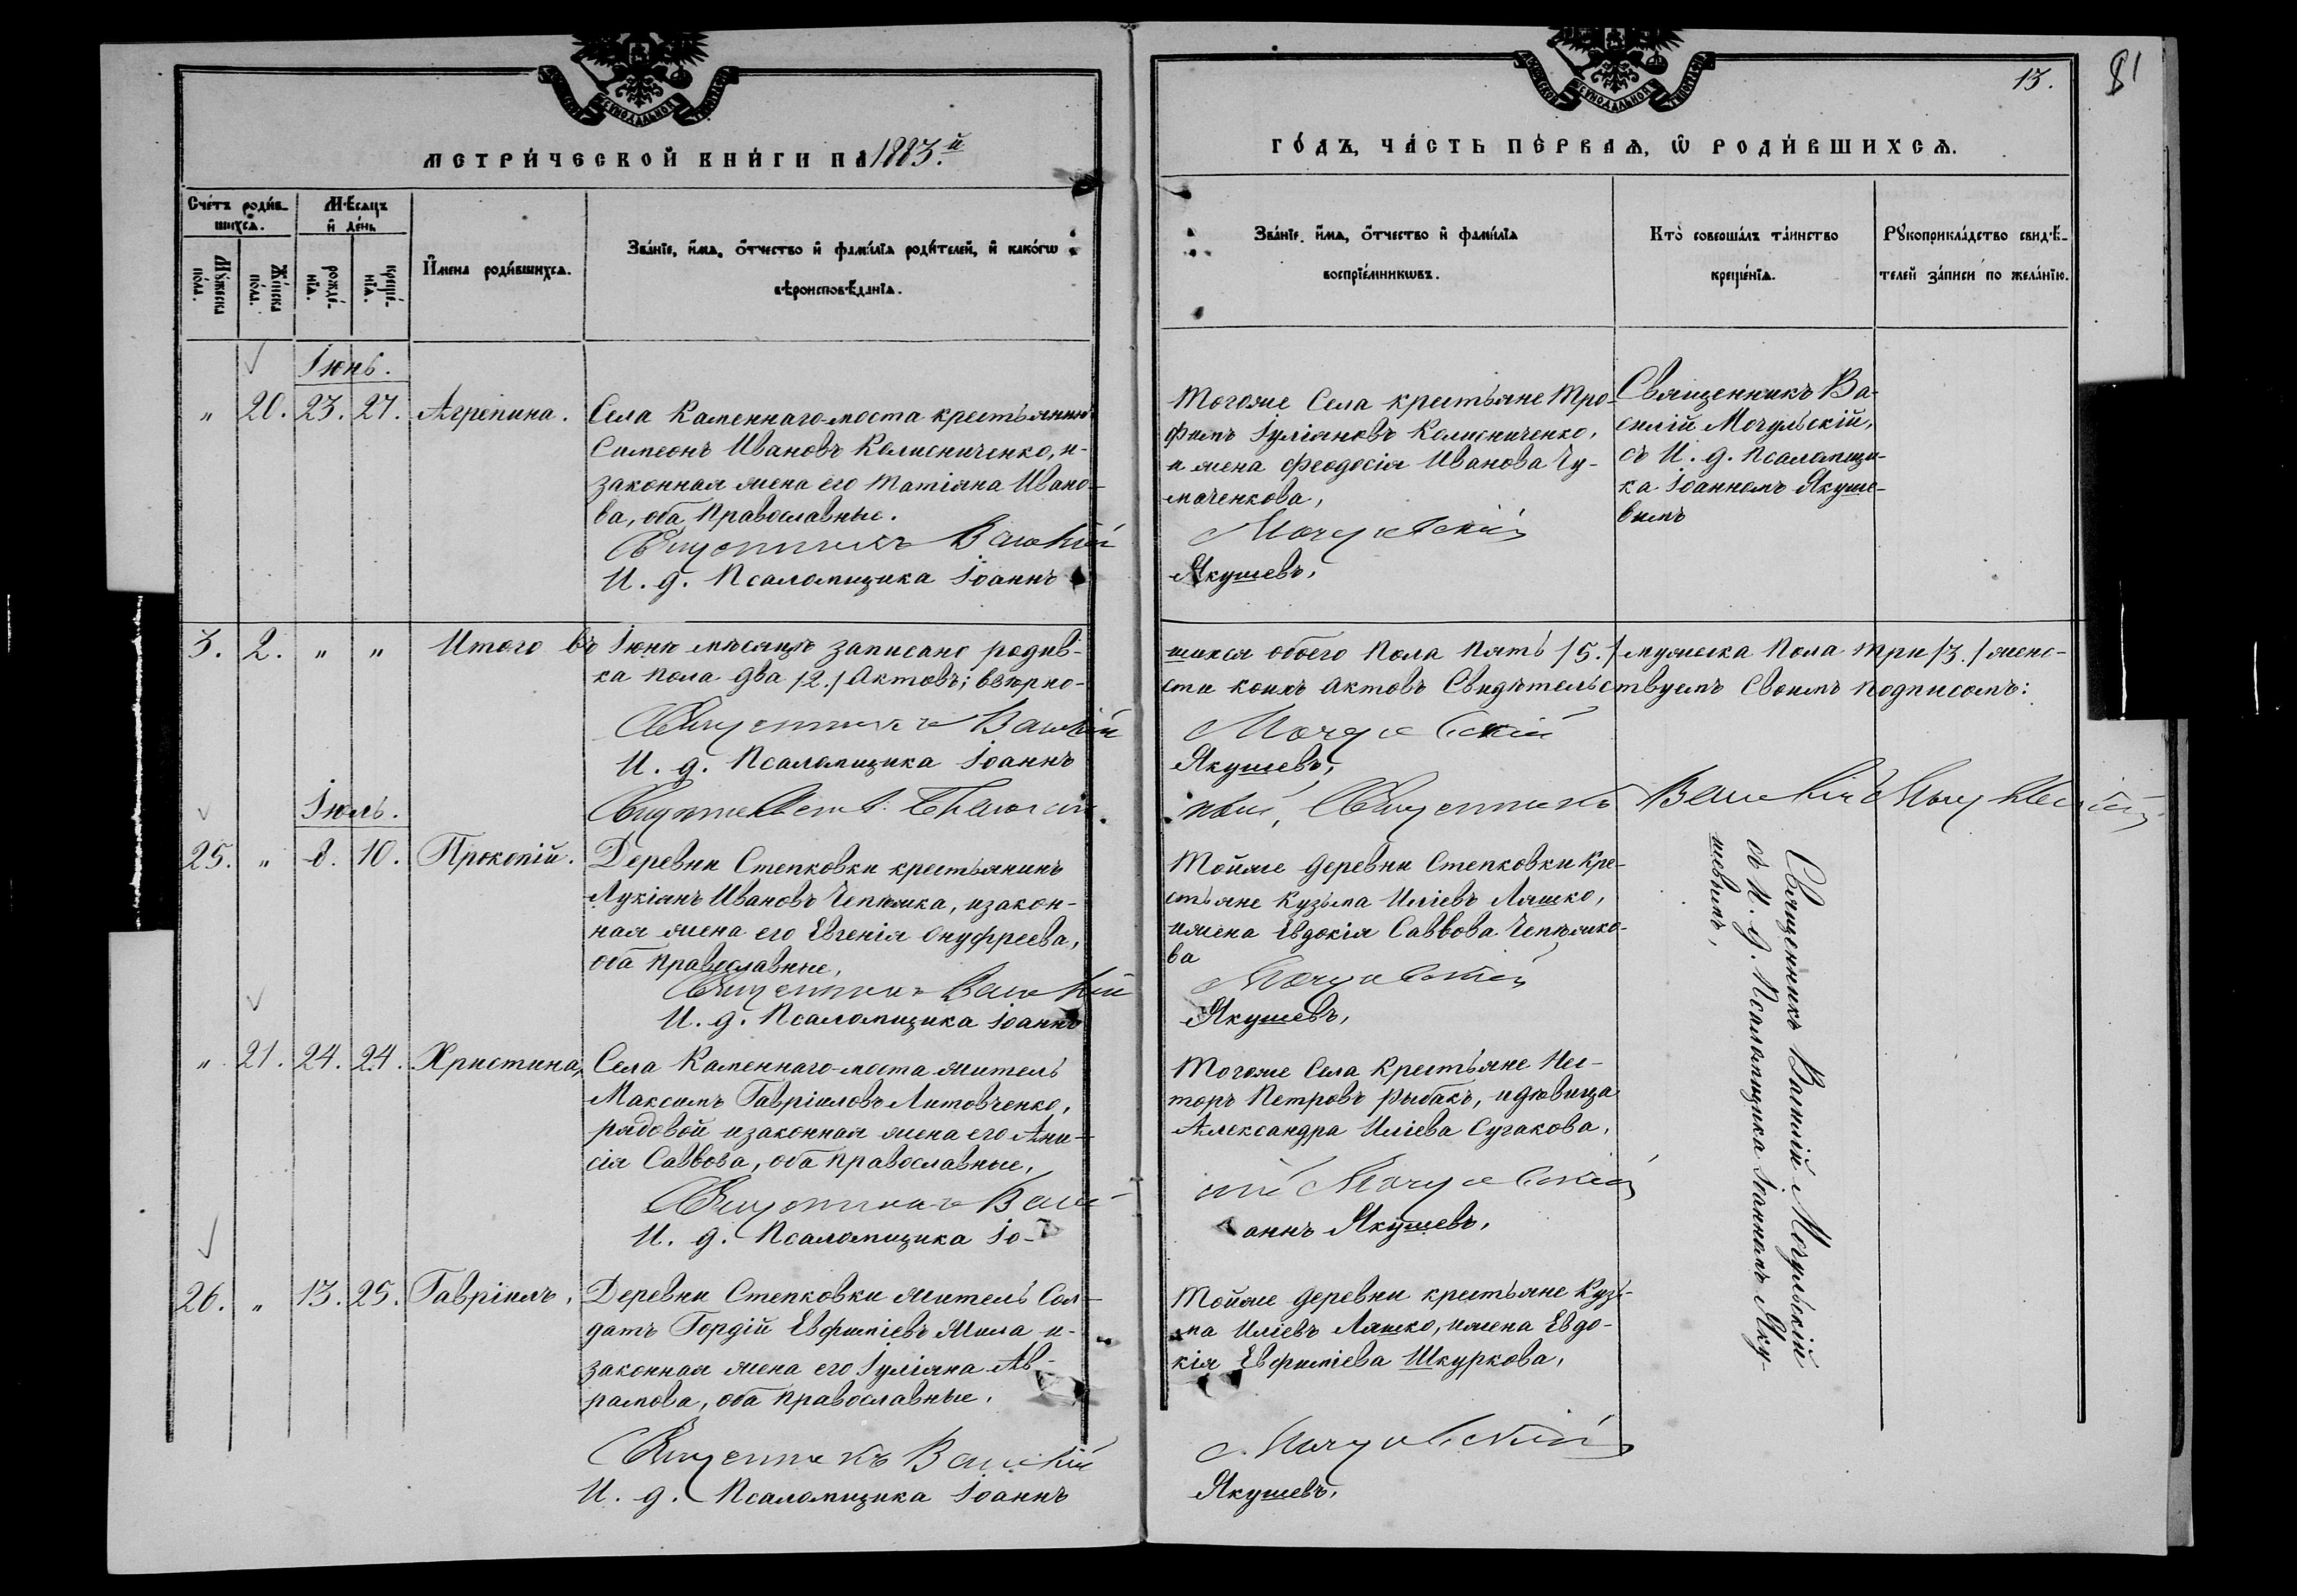 МЕТРИ́ЧЕСКОЙ КНИ́ГИ НА 1883.й
ГО́ДЪ, ЧА́СТЬ ПЕ́РВАѦ, Ѡ РОДИ́ВШИХСѦ.
13.
81
Сче́тъ роди́в-
шихсѧ.
Мѣсѧцъ
и҆ де́нь
Мꙋ́жеска по́ла.
Же́нска по́ла.
рожде́-нїѧ.
креще́-нїѧ.
И҆мена роди́вшихсѧ.
Зва́нїе, и҆́мѧ, ѻ҆́тчество и҆ фами́лїѧ роди́телей, и҆ како́гѡ
вѣроисповѣ́данїѧ.
Зва́нїе, и҆́мѧ, ѻ҆́тчество и҆ фами́лїѧ
воспрїе́мникѡвъ.
Кто̀ соверша́лъ та́инство
креще́нїѧ.
Рꙋкоприкла́дство свидѣ́-
телей за́писи по жела́нїю.
Іюнь.
" 20. 23. 27. Агрепина.
Села Каменнаго-моста крестьянинъ
Симеонъ Ивановъ Колисниченко, и-
законная жена его Татіяна Ивано-
ва, оба православные.
Священникъ Василій
И. д. Псаломщика Іоаннъ
Тогоже Села крестьяне Тро-
фимъ Іуліановъ Колисниченко,
и жена Феодосія Иванова Чу-
маченкова,
Мочульскій
Якушевъ,
Священникъ Ва-
силій Мочульскій,
съ И. д. Псаломщи-
ка Іоанномъ Якуше-
вымъ
3. 2. " " Итого въ Іюнѣ мѣсяцѣ записано родив-
ка пола два /2./ Актовъ; въвѣрно-
Священникъ Василій
И. д. Псаломщика Іоаннъ
шихся обоего Пола Пять /5./ мужеска Пола три /3./ женс-
сти коихъ Актовъ Свидѣтельствуемъ Своимъ подписомъ:
Мочульскій
Якушевъ,
Священникъ Василій Мочульскій
Іюль.
25. " 8. 10. Прокопій.
Деревни Степковки крестьянинъ
Лукіянъ Ивановъ Чепіжка, изакон-
ная жена его Евгенія Онуфреева,
оба православные,
Священникъ Василій
И. д. Псаломщика Іоаннъ
Тойже деревни Степковки Кре-
стьяне Кузьма Иліевъ Ляшко,
ижена Евдокія Саввова Чепіжко-
ва
Мочульскій
Якушевъ,
Священникъ Василій Мочульскій
съ И. д. Псаломщика Іоанномъ Яку-
шевымъ,
" 21. 24. 24. Христина,
Села Каменнаго-моста житель
Максимъ Гавріиловъ Литовченко,
рядовой изаконная жена его Ани-
сія Саввова, оба православные,
Священникъ Васи-
И. д. Псаломщика Іо-
Тогоже Села Крестьяне Нес-
торъ Петровъ Рыбакъ, идѣвица
Александра Иліева Сугакова,
лій Мочульскій
аннъ Якушевъ,
26. " 13. 25. Гавріилъ,
Деревни Степковки житель Сол-
датъ Гордій Евфиміевъ Жила и-
законная жена его Іуліяна Ав-
рамова, оба православные,
Священникъ Василій
И. д. Псаломщика Іоаннъ
Тойже деревни крестьяне Кузь-
ма Иліевъ Ляшко, ижена Евдо-
кія Евфиміева Шкуркова,
Мочульскій
Якушевъ,